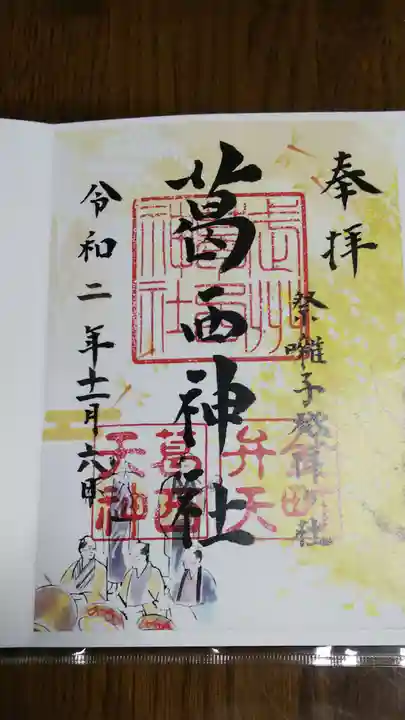 奉拝
祭囃子発祥の社
葛西神社
令和二年十一月六日
葛西
天神
弁天